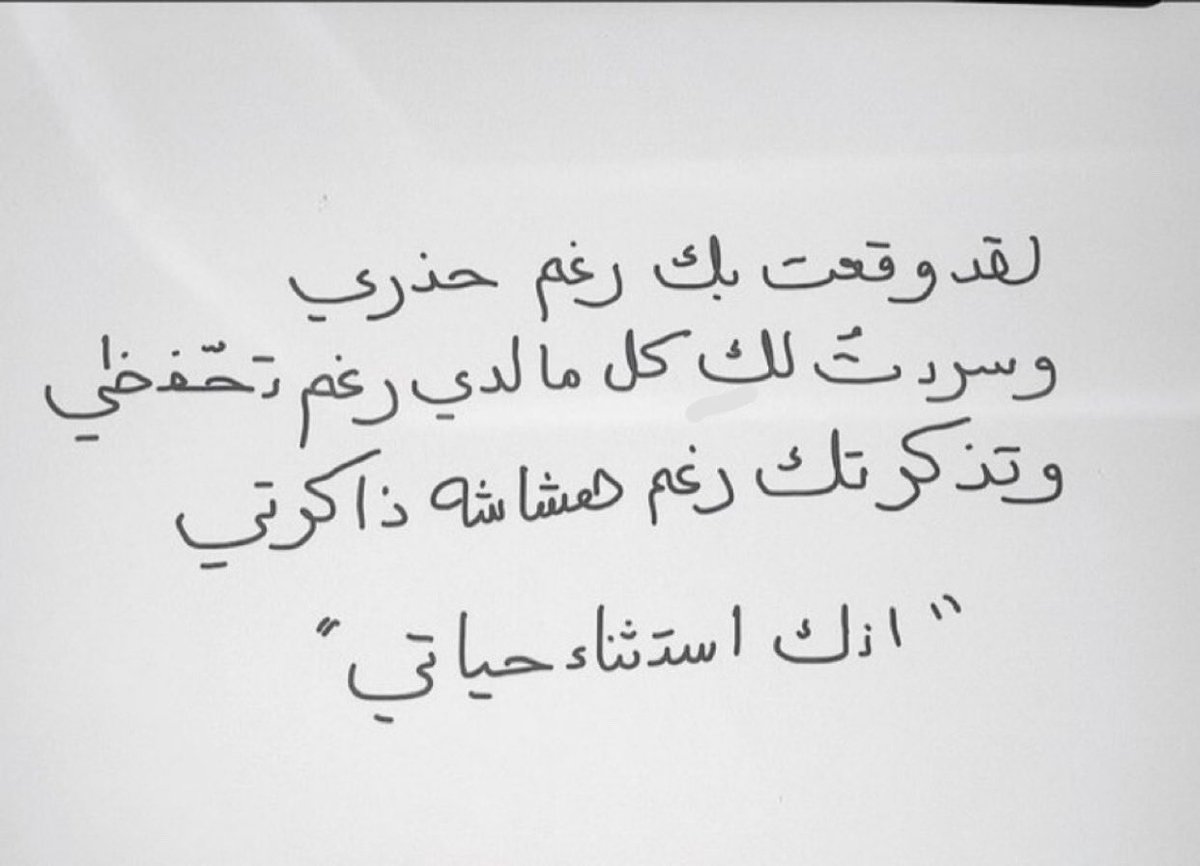 لقد وقعت بك رغم حذري
وسردتُ لك كل ما لدي رغم تحّفظي
وتذكرتك رغم هشاشه ذاكرتي
"انك استثناء حياتي"